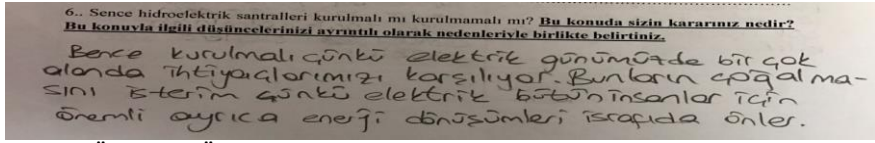 6.. Sence hidroelektrik santralleri kurulmalı mı kurulmamalı mı? Bu konuda sizin kararınız nedir?
Bu konuyla ilgili düşüncelerinizi ayrıntılı olarak nedenleriyle birlikte belirtiniz.
Bence kurulmalı çünkü elektrik günümüzde bir çok
alanda ihtiyaçlarımızı karşılıyor. Bunların çoğalma-
sını isterim çünkü elektrik bütün insanlar için
önemli ayrıca enerji dönüşümleri israfıda önler.